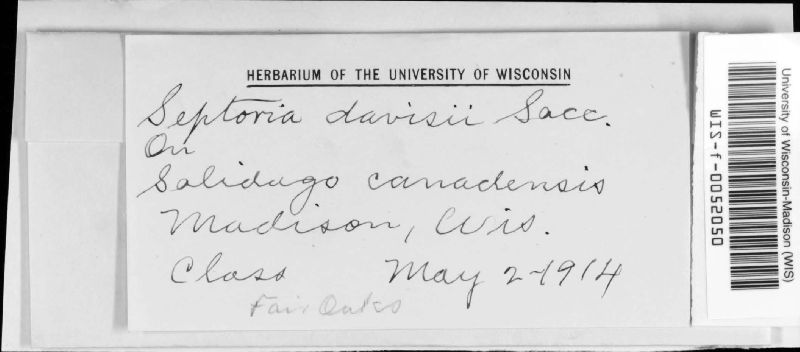 HERBARIUM OF THE UNIVERSITY OF WISCONSIN
Septoria davisii Sacc.
On
Solidago canadensis
Madison, Wis.
Class May 2-1914
Fair Oaks
University of Wisconsin-Madison (WIS)
WIS-f-0052050